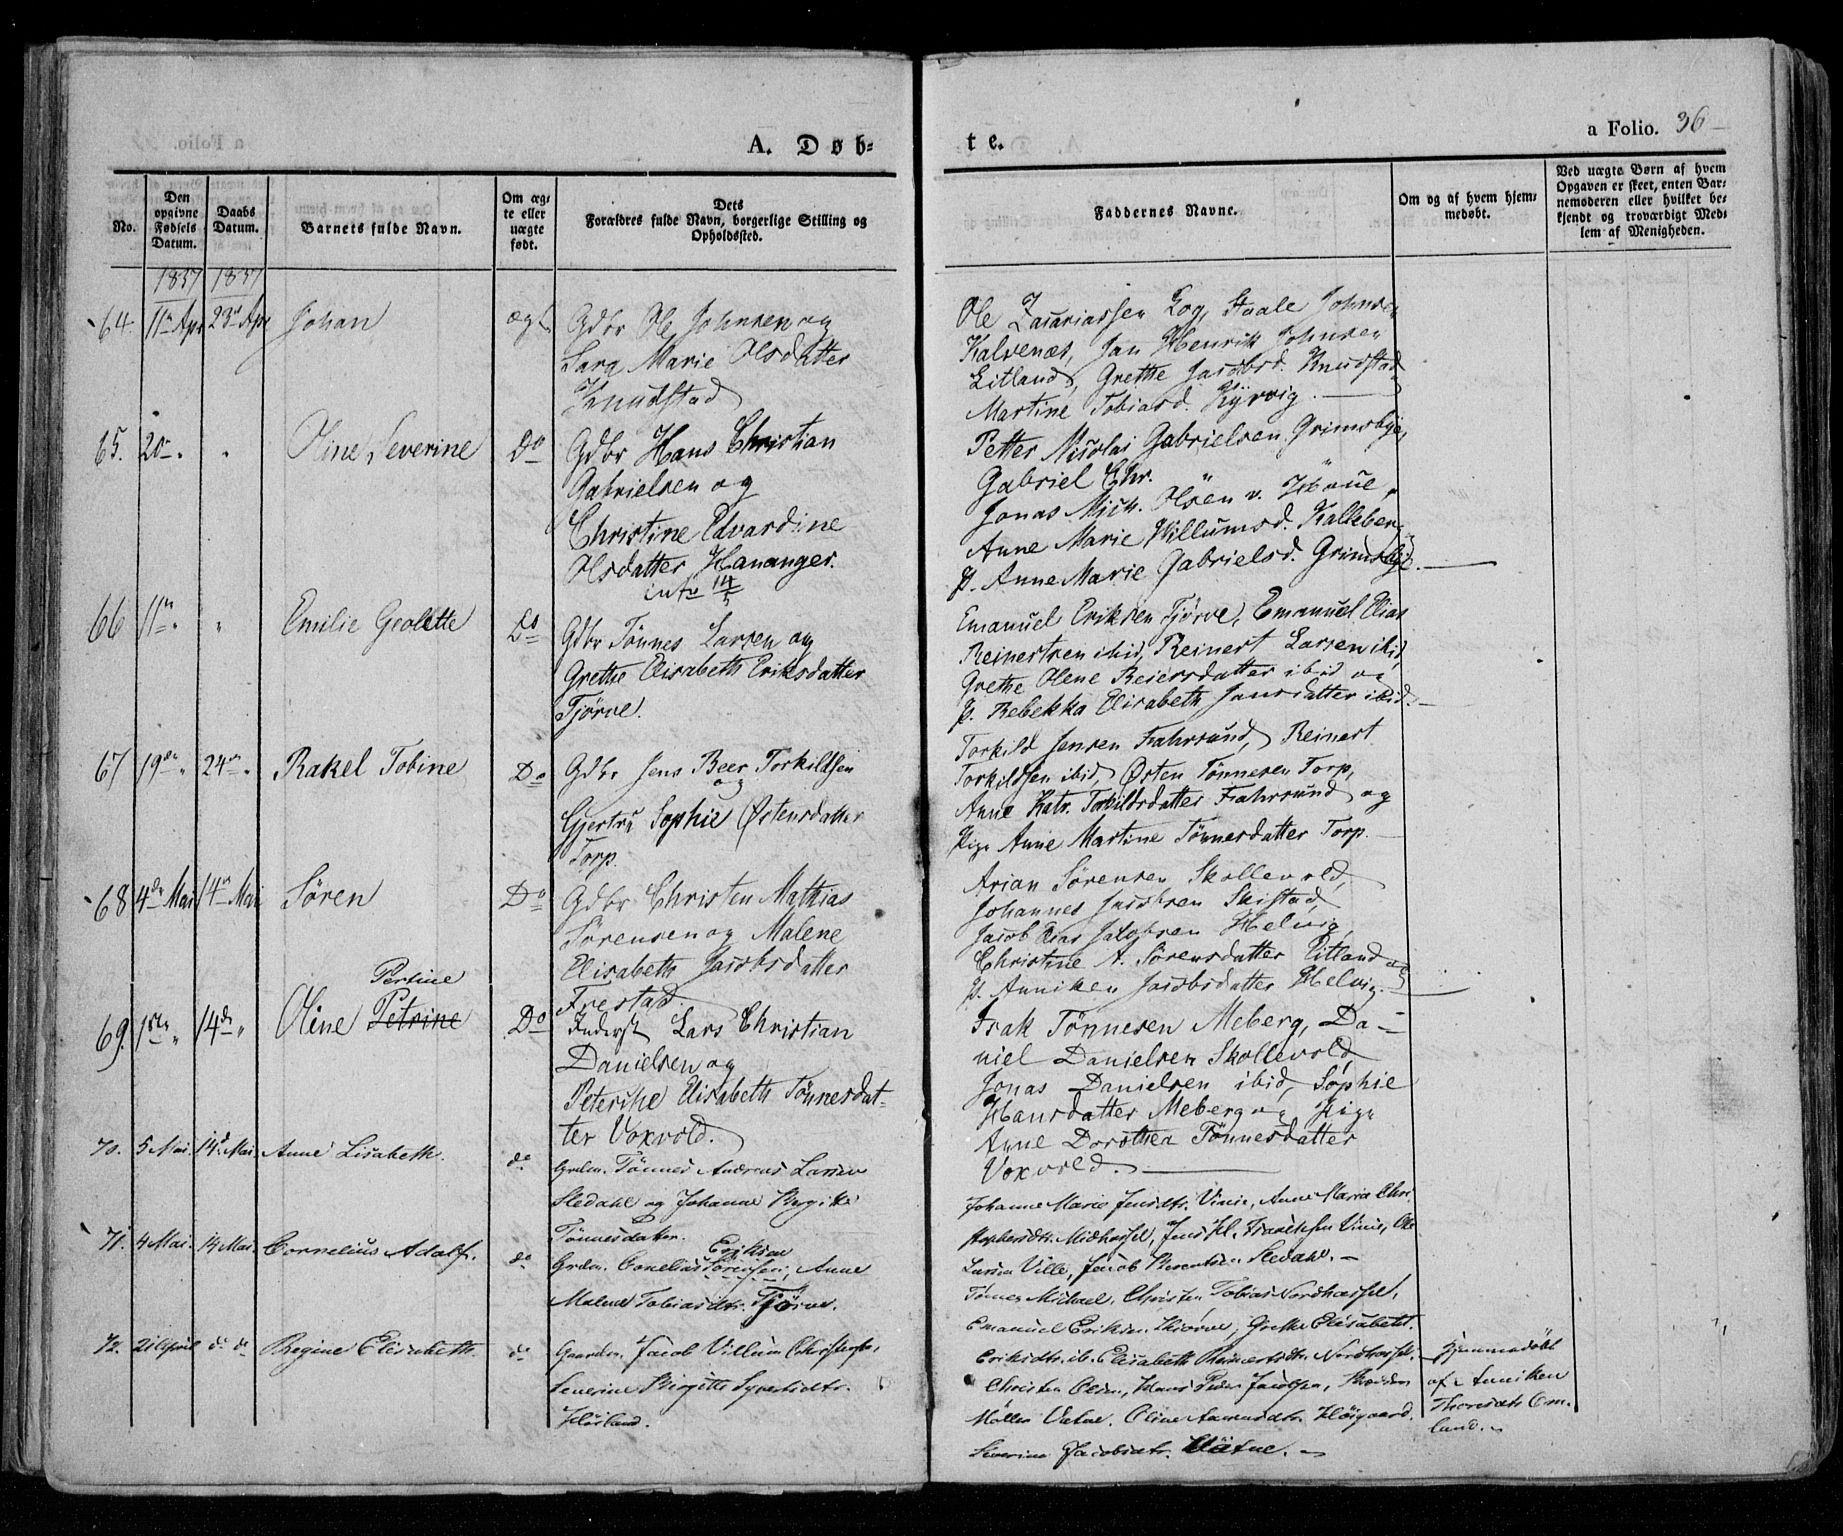 a Folio. 36
A. Døb-
te.
No.
Den opgivne Fødsels Datum.
Daabs Datum.
Barnets fulde Navn.
Om ægte eller uægte født.
Dets Forældres fulde Navn, borgerlige Stilling og Opholdssted.
Faddernes Navne.
Om og af hvem hjemmedøbt.
Ved uægte Børn af hvem Opgaven er skeet, enten Barnemoderen eller hvilket bekjendt og troværdigt Medlem af Menigheden.
1837 1837
64. 11te Apr 23de Apr Johan ægte
Gdbr Ole Johnsen og
Sara Marie Olsdatter
Knudstad
Ole Zacariassen Log, Staale Johnsen
Kalvenæs, Jan Henrik Johnsen
Eitland, Grethe Jacobsd. Knudstad
Martine Tobiasd. Kjørvig.
65. 20de " " Oline Severine Do
Gdbr Hans Christian
Gabrielsen og
Christine Edvardine
Olsdatter Hananger.
intr 14/5
Petter Nicolai Gabrielsen Grimsbye,
Gabriel Chr. " "
Jonas Mich. Olsen v. Haue,
Anne Marie Willumsd. Kalleberg
P. Anne Marie Gabrielsd. Grimsbye.
66 11te " " Emilie Geolette Do
Gdbr Tønnes Larsen og
Grethe Elisabeth Eriksdatter
Tjørve.
Emanuel Eriksen Tjørve, Emanuel Elias
Reinertsen ibid, Reinert Larsen ibid,
Grethe Olene Reiersdatter ibid og
P. Rebekka Elisabeth Jansdatter ibid.
67 19de " 24de " Rakel Tobine Do
Gdbr Jens Beer Torkildsen
og
Gjertru Sophie Østensdatter
Torp.
Torkild Jensen Fahrsund, Reinert
Torkildsen ibid, Østen Tønnesen Torp,
Anne Katr. Torkildsdatter Fahrsund og
Pige Anne Martine Tønnesdatter Torp.
68 4de Mai 14de Mai Søren Do
Gdbr Christen Mathias
Sørensen og Malene
Elisabeth Jacobsdatter
Frestad.
Arian Sørensen Skollevold,
Johannes Jacobsen Skistad,
Jacob Elias Jacobsen Helvig,
Christine A. Sørensdatter Eitland og
P. Anniken Jacobsdatter Helvig.
Pertine
69. 1ste " 14de " Oline Petrine Do
Inderst Lars Christian
Danielsen og
Petersche Elisabeth Tønnesdat-
ter Voxvold.
Isak Tønnesen Meberg, Da-
niel Danielsen Skollevold,
Jonas Danielsen ibid, Sophie
Hansdatter Meberg og Pige
Anne Dorothea Tønnesdatter
Voxvold.
70. 5 Mai. 14de Mai. Anne Lisabeth. do
Grdm. Tønnes Andreas Larsen
Sledahl og Johanne Birgitte
Tønnesdatter.
Johanne Marie Jensdtr. Vinie, Anne Maria Chri-
stophersdtr. Midhassel, Jens
Larsen Ville, Jacob Sledahl.
71. 4 Mai. 14 Mai. Cornelius Adolf. do
Eriksen
Grdm. Cornelius Sørensen, Anne
Malene Tobiasdtr. Tjørve.
Tønnes Michael, Christen Tobias Nordhassel,
Emanuel Eriksen Tjørve, Grethe Elisabeth
Eriksdtr. ib. Elisabeth Reinertsdtr. Nordhassel.
72. 21 April do do Regine Elisabeth. do
Gaardm. Jacob Villum Christophs.,
Severine Birgitte Syvertsdtr.
Christen Olsen, Hans Peder Jacobsen,
Møller Vatne. Oline Høigaard.
Severine Jacobsdtr. Vatne.
Hjemmedøbt
af Anniken
Thoresdtr Om-
land.